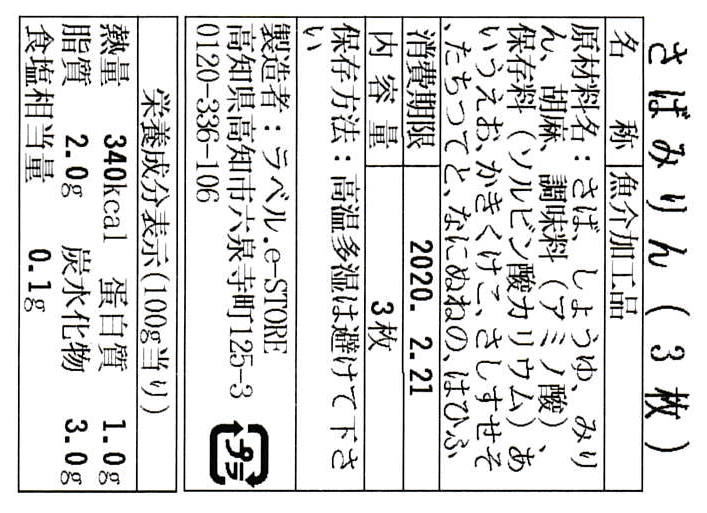 さばみりん(3枚)
名 称 魚介加工品
原材料名:さば、しょうゆ、みり
ん、胡麻、調味料(アミノ酸)、
保存料(ソルビン酸カリウム)、あ
いうえお、かきくけこ、さしすせそ
、たちつてと、なにぬねの、はひふ
消費期限 2020. 2.21
内 容 量 3枚
保存方法:高温多湿は避けて下さ
い
製造者:ラベル.e-STORE
高知県高知市六泉寺町125-3
0120-336-106
プラ
栄養成分表示(100g当り)
熱量 340kcal 蛋白質 1.0g
脂質 2.0g 炭水化物 3.0g
食塩相当量 0.1g